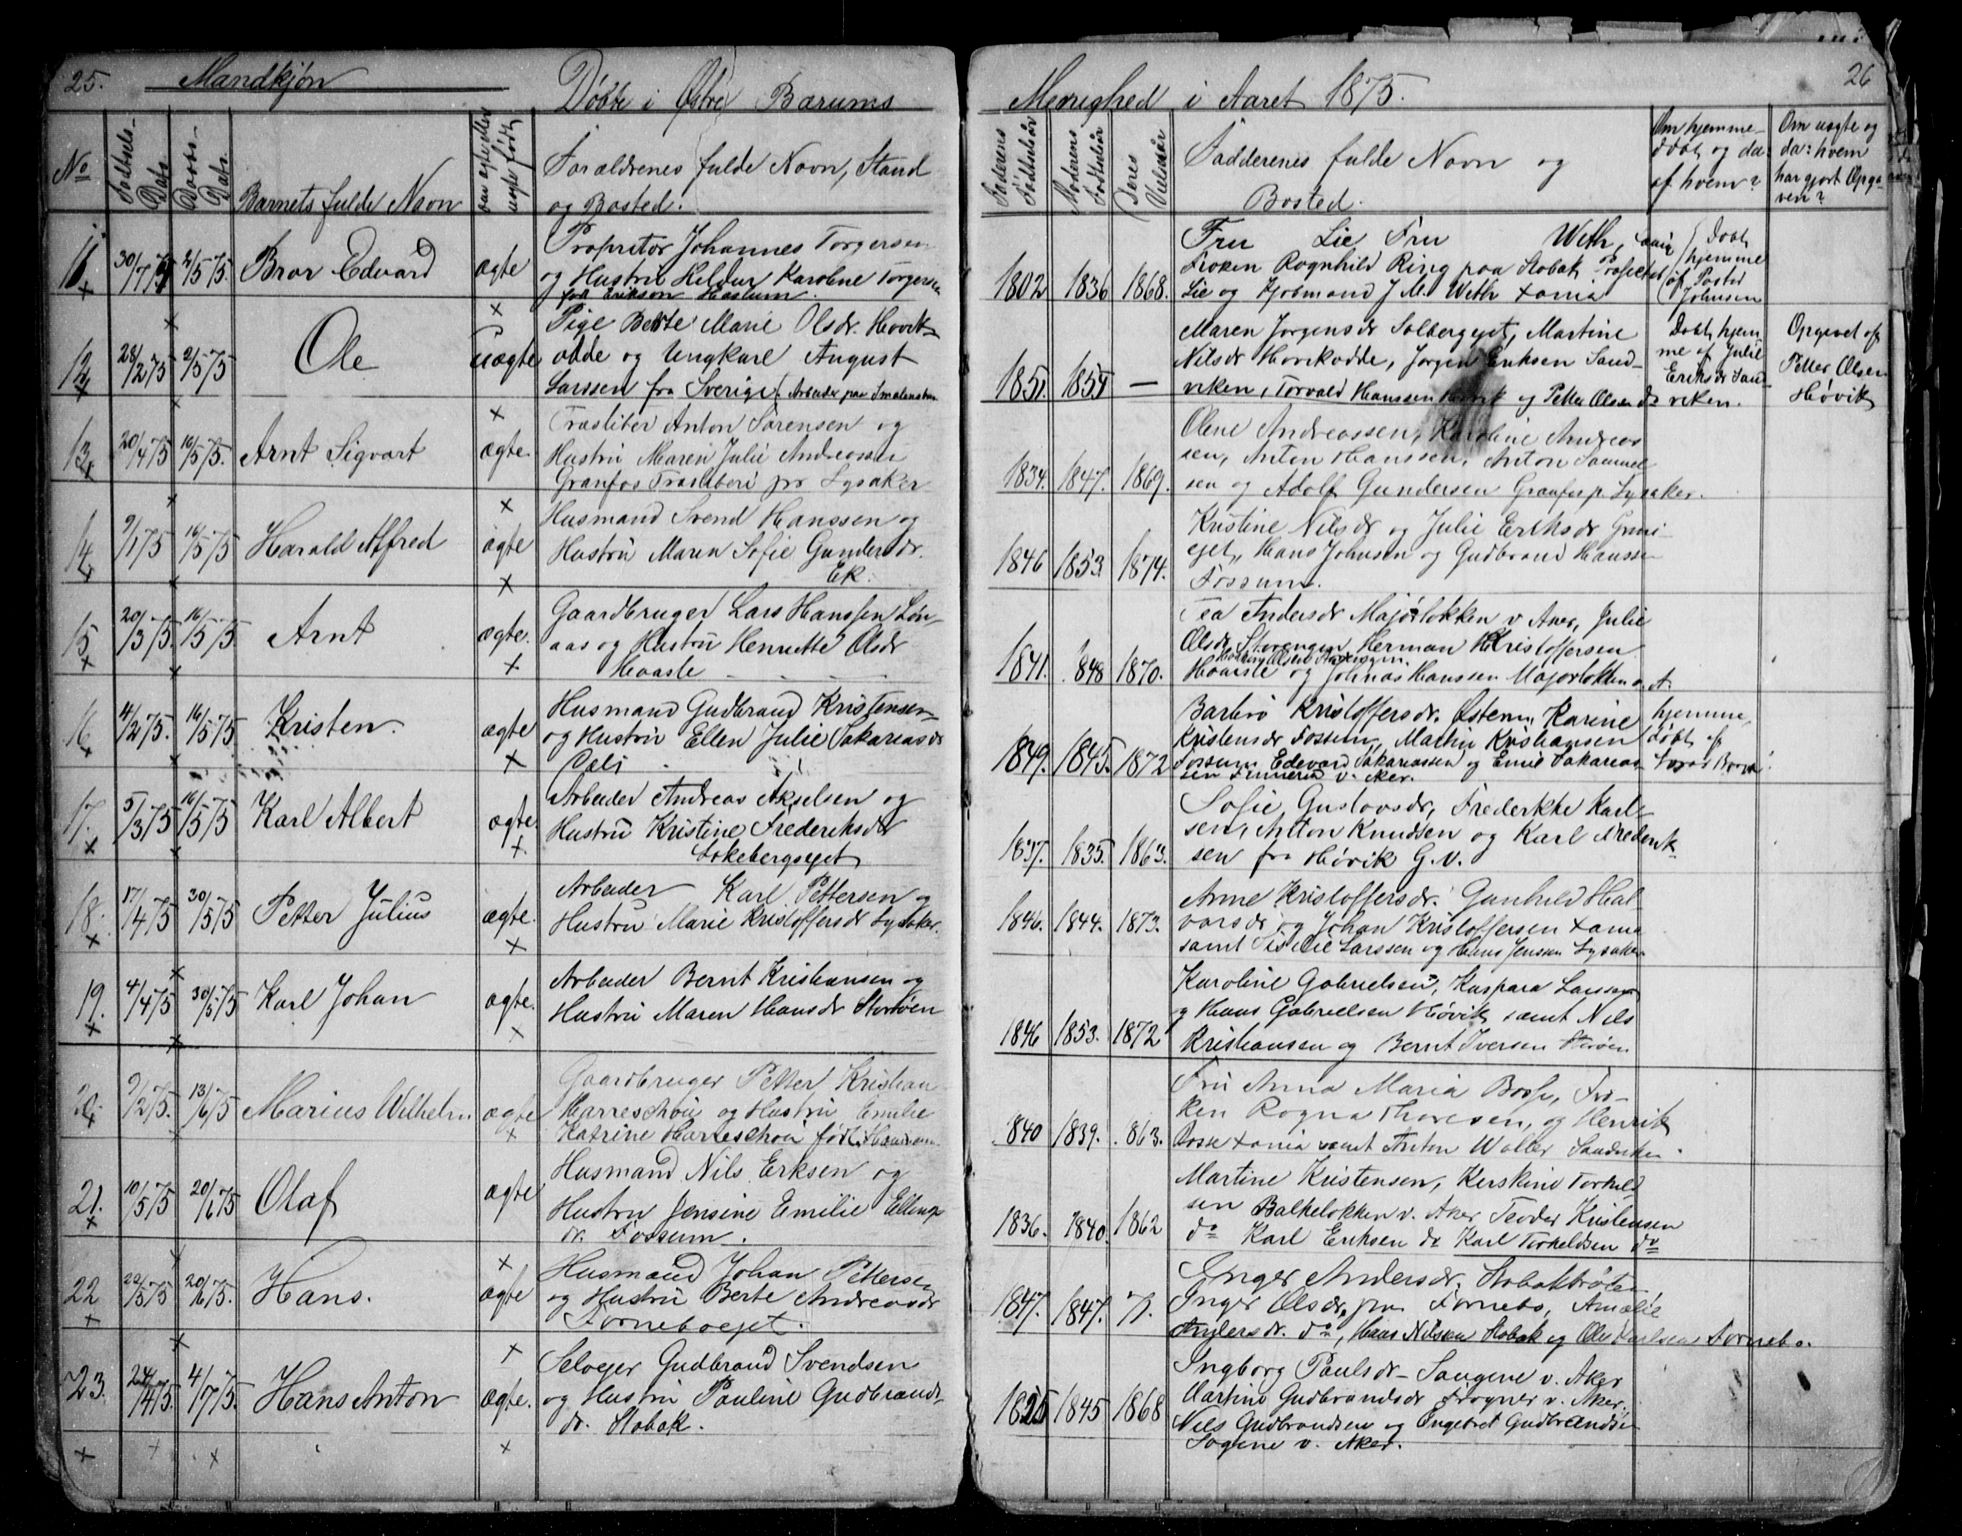 25. Mandkjøn
Døbte i Østre Bærums
Menighed i Aaret 1875.
26
No
Fødsels-Dato
Daabs-Dato.
Barnets fulde Navn
om ægte eller uægte født
Forældrenes fulde Navn, Stand
og Bosted.
Faderens Fødselsår
Moderens Fødselsår
Deres Vielsesår
Fadderenes fulde Navn og
Bosted.
Om hjemme-
døbt og da:
af hvem?
Om uægte og
da: hvem
har gjort Opgi-
ven?
11
2/5 75.
Bror Edvard
ægte
Propritør Johannes Torgersen
og Hustru Hildur Karoline Torgersen
født Erikson Haslum.
1802 1836 1868.
Fru Lie Fru Weth,
Frøken Ragnhild Ring paa Stabæk
Lie og Kjøbmand J. M. Weth Xania
Døbt
hjemme
af Pastor
Johnsen
12
28/2 75
2/5 75
Ole
uægte
Pige Berte Marie Olsdr. Høvik-
odde og Ungkarl August
Larssen fra Sverige, Arbeider paa
1851. 1854 —
Maren Jørgensdr Solbergejet, Martine
Nilsdr Høvikodde, Jørgen Eriksen Sand-
viken, Torvald Hanssen Høvik og Petter Olsen do
Døbt hjem-
me af Julie
Eriksdr Sand-
viken.
Opgivet af
Petter Olsen
Høvik
13
20/4 75
16/5 75.
Arnt Sigvart
ægte.
Træsliber Anton Sørensen og
Hustru Maren Julie Andreassen
Granfos Træsliberi pr Lysaker
1834. 1847. 1869.
Olene Andreassen, Karoline Andreas
sen, Anton Hanssen, Anton Samuel
sen og Adolf Gundersen Granfos p. Lysaker.
14
9/1 75
16/5 75
Harald Alfred
ægte
Husmand Svend Hanssen og
Hustru Maren Sofie Gundersdr.
Ek.
1846 1853. 1874.
Kristine Nilsdr og Julie Eriksdr Grini-
ejet, Hans Johnsen og Gudbrand Hanssen
Fossum.
15
20/3 75.
16/5 75
Arnt
ægte.
Gaardbruger Lars Hanssen Løn-
aas og Hustru Henriette Olsdr
Haasle
1841. 848 1870.
Tea Andersdr Majorløkken v Aker, Julie
Olsdr Stovengen, Herman Kristoffersen
Haasle og Johnas Hanssen Majorløkken v. A.
16
4/2 75.
16/5 75
Kristen.
ægte
Husmand Gudbrand Kristensen
og Hustru Ellen Julie Sakariasdr
1849. 1845. 1872
Barbro Kristoffersdr. Østern, Karine
Kristensdr Fossum, Martin Kristiansen
Fossum, Edevard Sakariassen og Emil Sakarias-
sen v. Aker.
hjemme
døbt af
17.
5/3 75
16/5 75
Karl Albert
ægte.
Arbeider Andreas Akselsen og
Hustru Kristine Frederiksdr
Løkebergsejet
1837. 1835. 1863.
Sofie Gustavsdr, Frederikke Karl-
sen, Anton Knudsen og Karl Frederik-
sen fra Høvik G.V.
18.
17/4 75
30/5 75
Petter Julius
ægte.
Arbeider Karl Pettersen og
Hustru Marie Kristoffersdr Lysaker.
1846. 1844. 1873.
Anne Kristoffersdr. Gunhild Hal-
vorsdr og Johan Kristoffersen Xania
samt Larssen og Hans Jenssen Lysaker
19.
4/4 75
30/5 75
Karl Johan
ægte.
Arbeider Bernt Kristiansen og
Hustru Maren Hansdr Storøen
1846 1853. 1872
Karoline Gabrielsen, Kaspara Larssen
og Hans Gabrielsen Høvik samt Nils
Kristiansen og Bernt Iversen Storøen
20.
9/2 75.
13/6 75
Marius Wilhelm
ægte
Gaardbruger Petter Kristian
Harreschou og Hustru Emilie
Katrine Harreschou født
840 1839. .863.
Fru Anna Maria Bosse, Frø-
ken Ragna Thoresen, og Henrik
Bosse Xania samt Anton Walter Sandviken.
21.
10/5 75
20/6 75
Olaf
ægte
Husmand Nils Eriksen og
Hustru Jensine Emilie Ellings
dr. Fossum.
1836. 1840. 1862
Martine Kristensen, Kerstine Torkild
sen Balkeløkken v. Aker Teodor Kristensen
do Karl Eriksen do Karl Torkeldsen do
22
20/6 75.
Hans.
ægte
Husmand Johan Pettersen
og Hustru Berte Andreasdr
Forneboejet.
1847. 1847. 71.
Inger Andersdr. Stabækbråten
Inger Olsdr, pr Fornebo, Amalie
Andersdr. do, Hans Nilsen Stabæk og Ole Karlsen Fornebo.
23.
24/4 75.
4/7 75.
Hans Anton
ægte.
Seloejer Gudbrand Svendsen
og Hustru Pauline Gudbrands-
dr. Stabæk.
1825 1845 1868
Ingborg Paulsdr Saugene v. Aker
Martine Gudbrandsdr Frogner v. Aker,
Nils Gudbrandsen og Engebret Gudbrandsen
Sogene v. Aker.